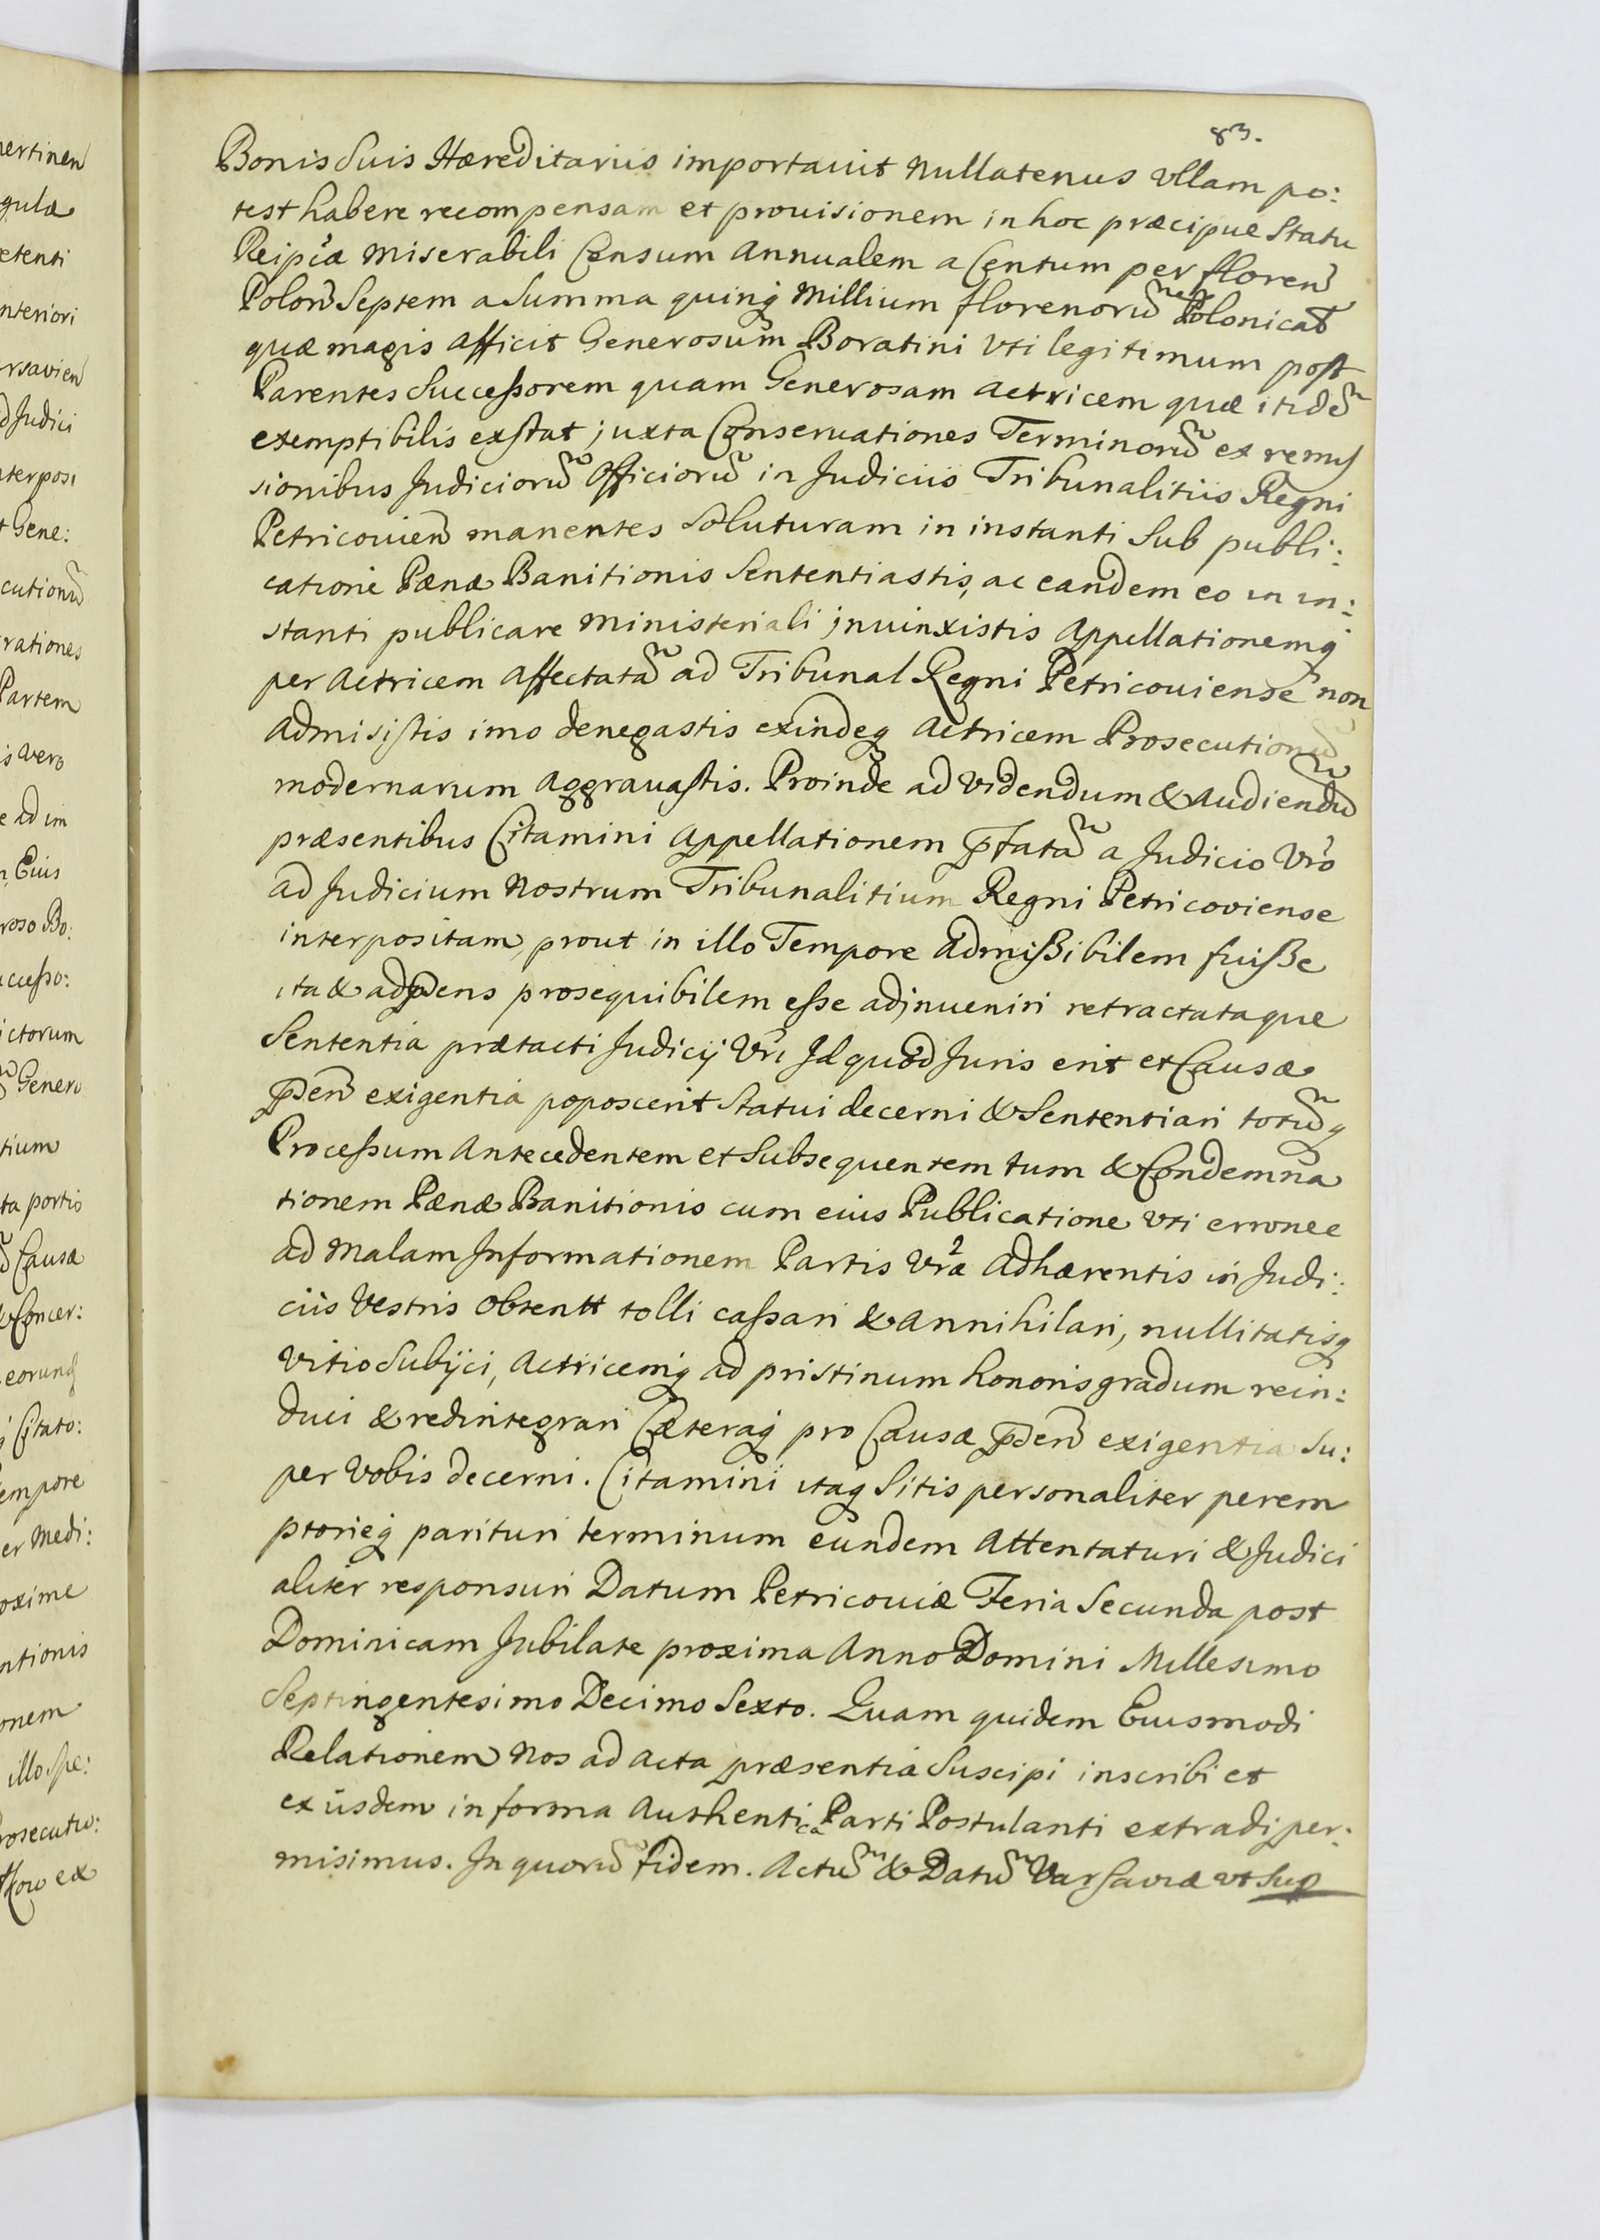 83.
Bonis Suis Hæreditariis importauit nullatenus vllam po:
test habere recompensam et prouisionem in hoc præcipue Statu
Reipcæ miserabili Censum Annualem a Centum per floren
Polon Septem a Summa quinq millium florenorũ Polonical
quæ magis afficit Generosum Boratini vti legitimum post
Parentes Successorem quam Generosam Actricem quæ itidẽ
exemptibilis exstat juxta Conseruationes Terminorũ ex remis
sionibus Judiciorũ Officiorũ in Judiciis Tribunalitiis Regni
Petricouien manentes Soluturam in instanti Sub publi:
catione Pænæ Banitionis Sententiastis, ac eandem eo in in:
stanti publicare ministeriali jnuinxistis Appellationemq
per Actricem affectatã ad Tribunal Regni Petricouiense non
admisistis imo denegastis exindeq Actricem Prosecutionũ
modernarum aggrauastis. Proinde ad videndum & audiendũ
præsentibus Citamini Appellationem pfatã a Judicio Vro
ad Judicium Nostrum Tribunalitium Regni Petricoviense
interpositam, prout in illo Tempore admissibilem fuisse
ita & ad pdens prosequibilem esse adjnueniri retractataque
Sententia prætacti Judicij Vri Id quod Juris erit et Causæ
pden exigentia poposcerit Statui decerni & Sententiari totũq
Processum Antecedentem et Subsequentem tum & Condemna
tionem Pænæ Banitionis cum eius Publicatione vti erronee
ad malam Informationem Partis Vræ adhærentis in Judi:
ciis Vestris obtentt tolli cassari & annihilari, nullitatisq
vitio Subijci, Actricemq ad pristinum honoris gradum rein:
duci & redintegrari Cæteraq pro Causæ pden exigentia Su:
per Vobis decerni. Citamini itaq Sitis personaliter perem
ptorieq parituri terminum eundem Attentaturi & Judici
aliter responsuri Datum Petricouiæ Feria Secunda post
Dominicam Jubilate proxima Anno Domini Millesimo
Septingentesimo Decimo Sexto. Quam quidem Eiusmodi
Relationem Nos ad Acta præsentia Suscipi inscribi et
ex iisdem in forma Authentica Parti Postulanti extradi per:
misimus. In quorũ fidem. Actũ & Datũ Varsauiæ vt Sup